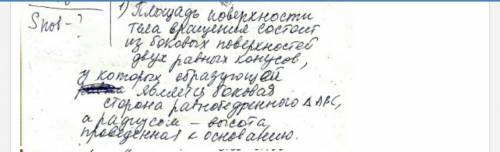 Sпов-?
1) Площадь поверхности
тела вращения состоит
из боковых поверхностей
двух равных конусов,
у которых образующей
является боковая
сторона равнобедренного △ABC,
а радиусом - высота,
проведенная к основанию.